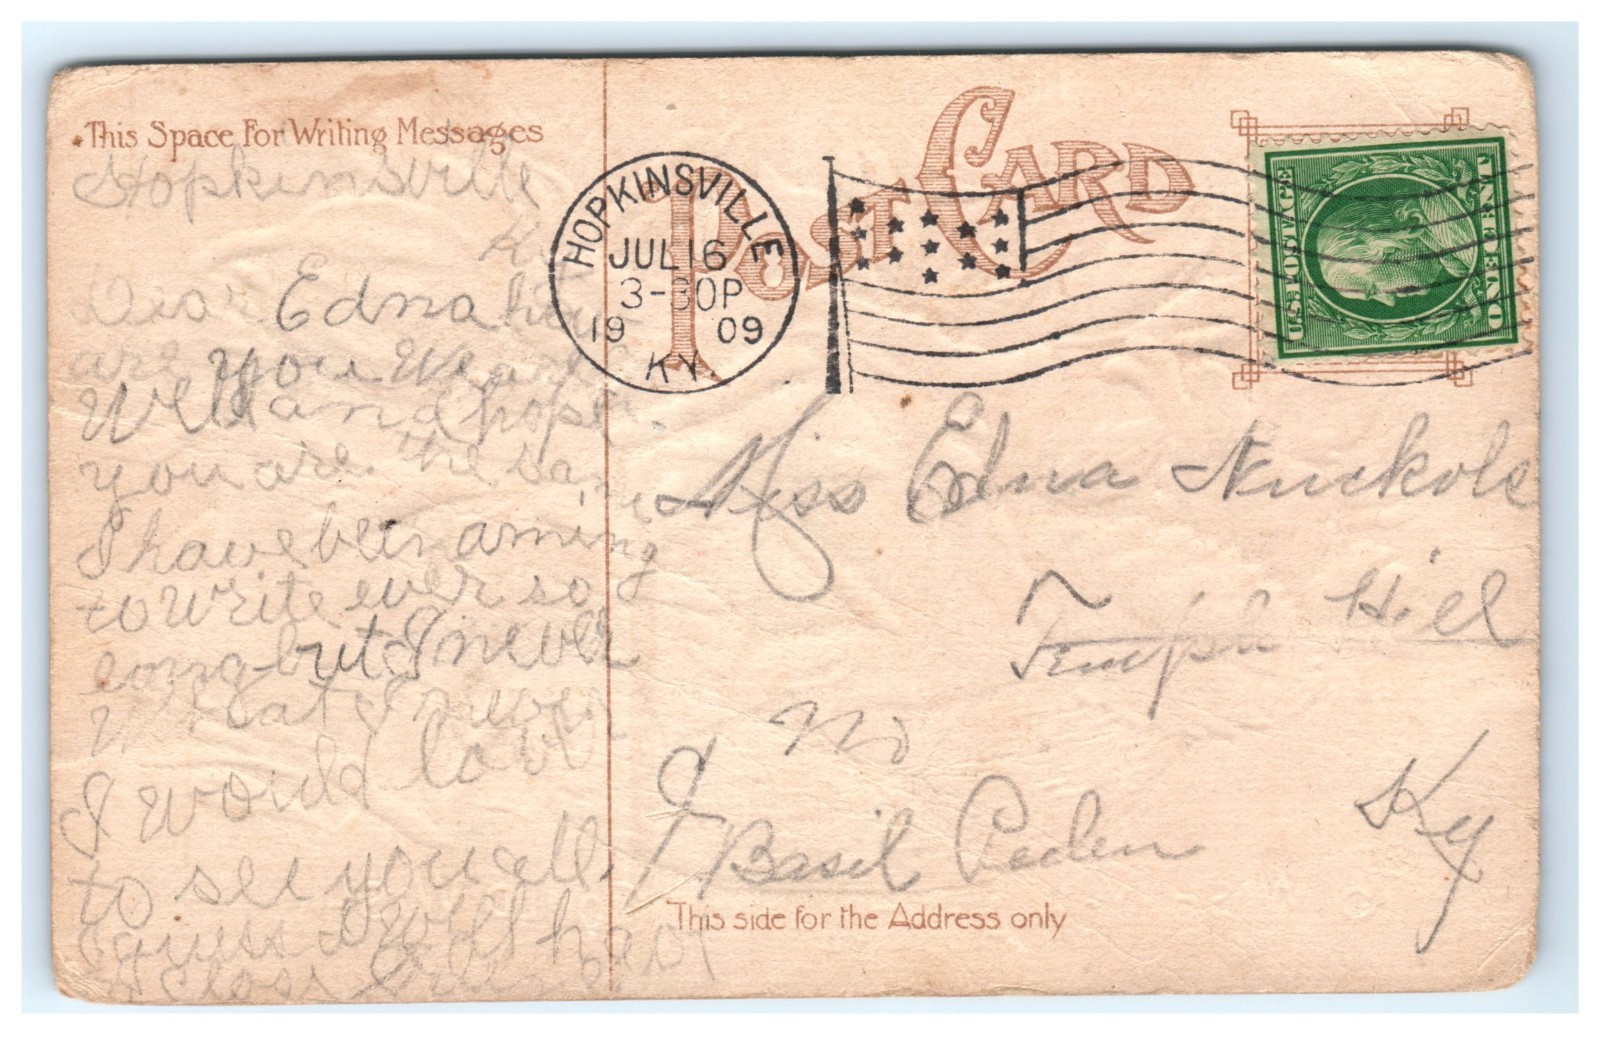 This Space For Writing Messages
POST CARD
HOPKINSVILLE
JUL 16
3-30P
1909
KY.
U.S. POSTAGE
ONE CENT
Hopkinsville
Ky
Dear Edna how
are you we are
well and hope
you are the same
I have been aming
to write ever so
long but I never
I would love
to see you all
I guess I will
close
Miss Edna Nuckols
Temple Hill
Ky
℅ Basil Peden
This side for the Address only